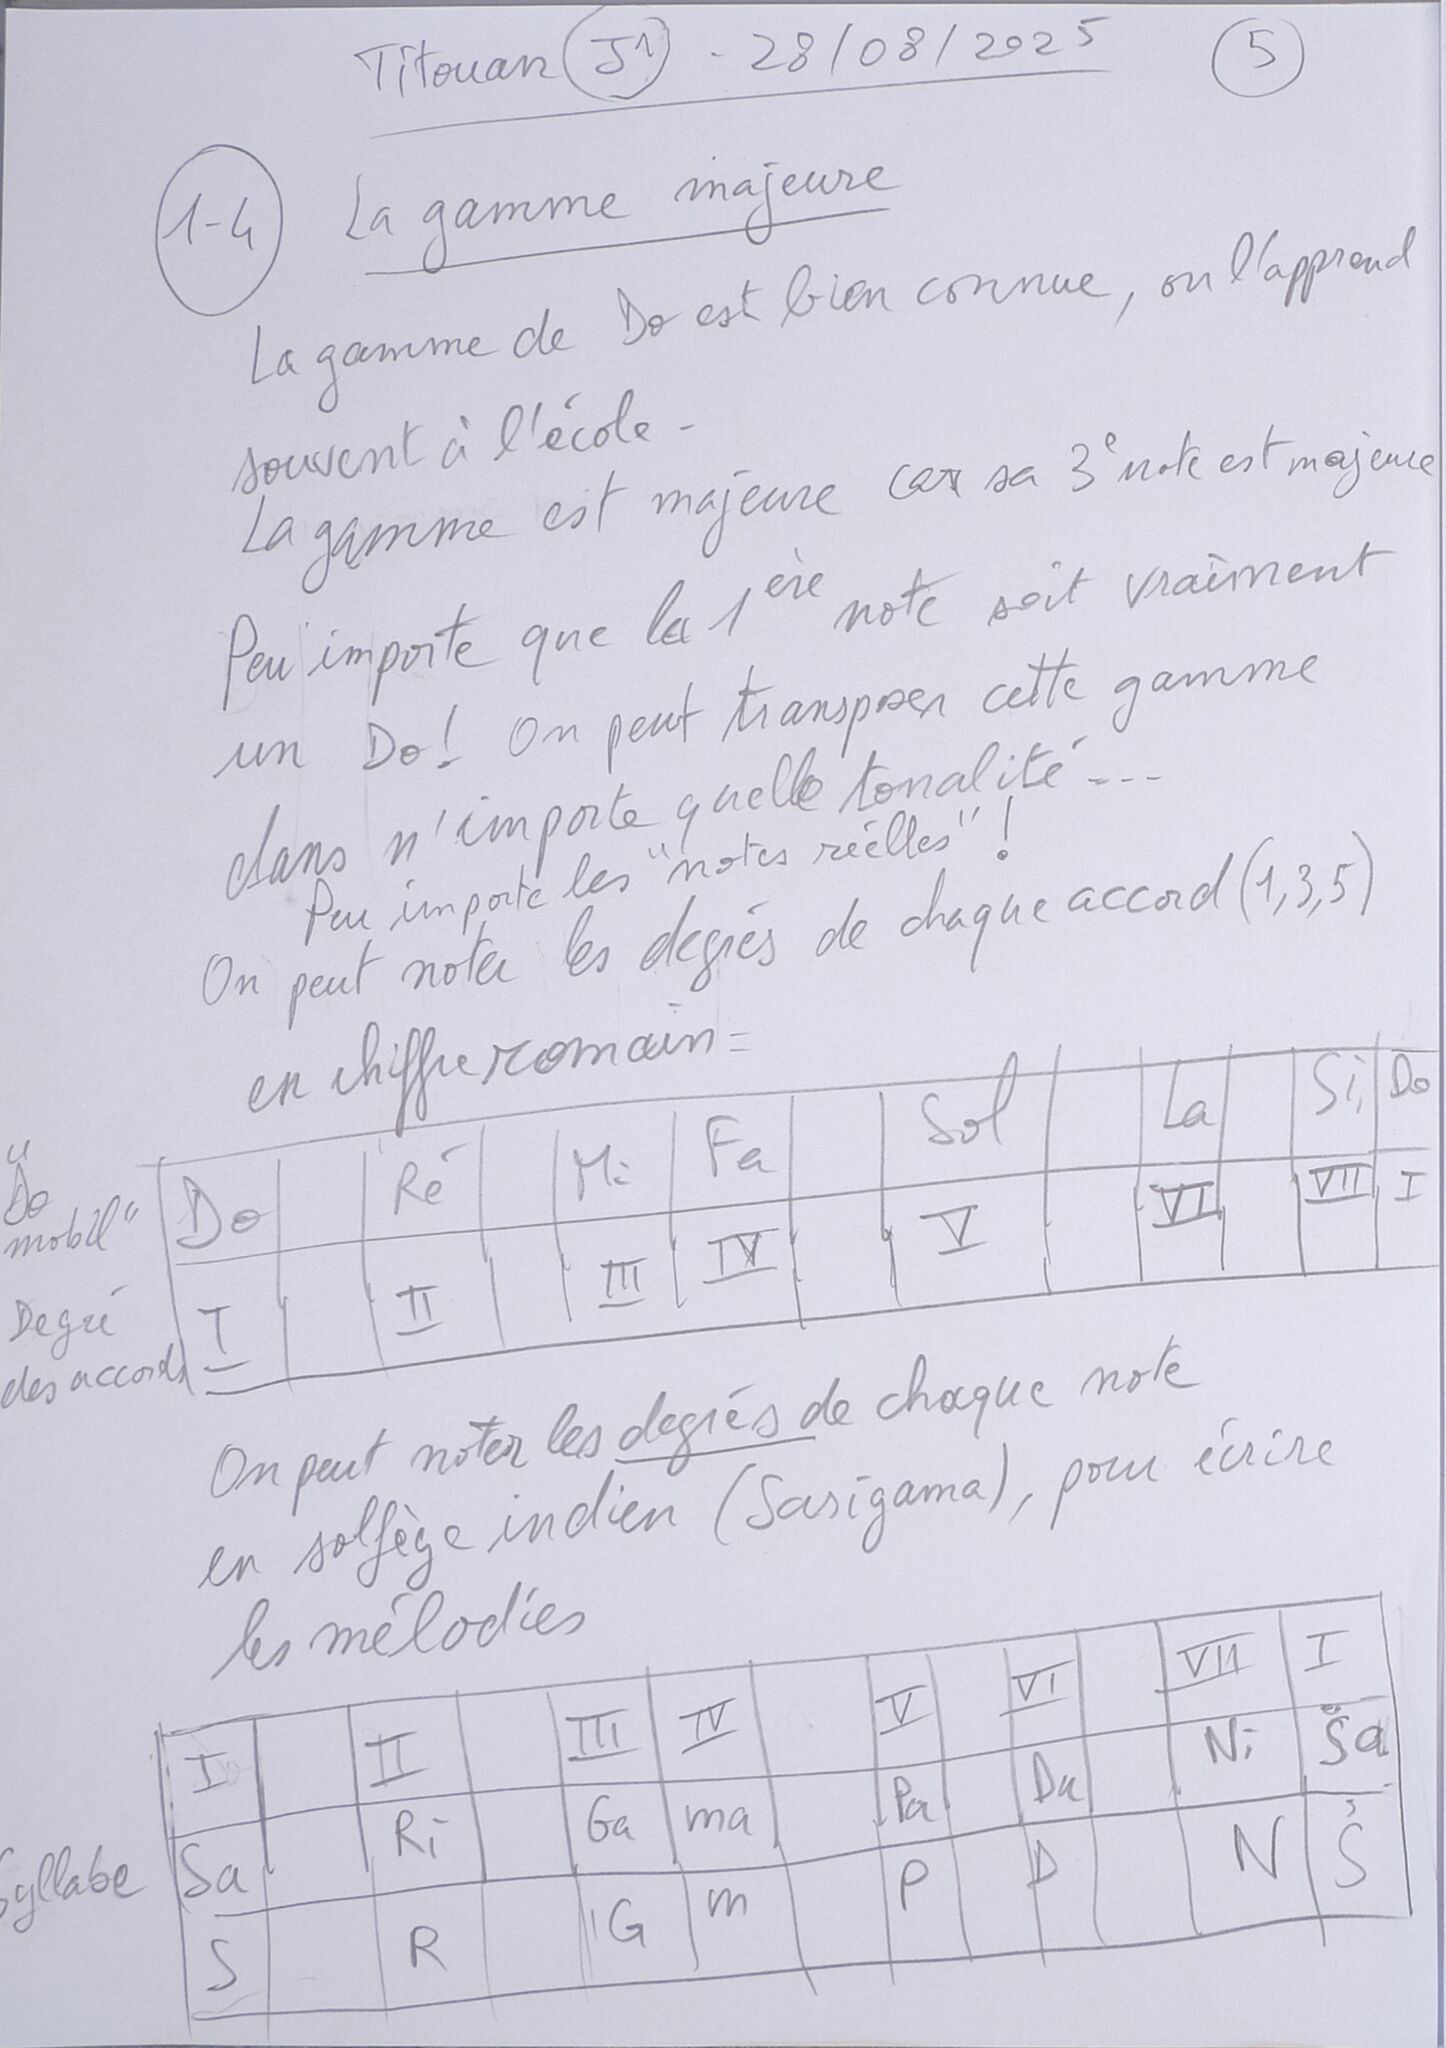 Titouan J1 - 28/08/2025 5
1-4 La gamme majeure
La gamme de Do est bien connue, on l'apprend
souvent à l'école -
La gamme est majeure car sa 3e note est majeure
Peu importe que la 1ère note soit vraiment
un Do! On peut transposer cette gamme
dans n'importe quelle tonalité---
Peu importe les "notes réelles"!
On peut noter les degrés de chaque accord (1,3,5)
en chiffre romain=
"Do mobil" Do Ré Mi Fa Sol La Si Do
Degré des accords I II III IV V VI VII I
On peut noter les degrés de chaque note
en solfège indien (Sarigama), pour écrire
les mélodies
I II III IV V VI VII I
Syllabe Sa Ri Ga ma Pa Da Ni Ṡa
S R G m P D N Ṡ